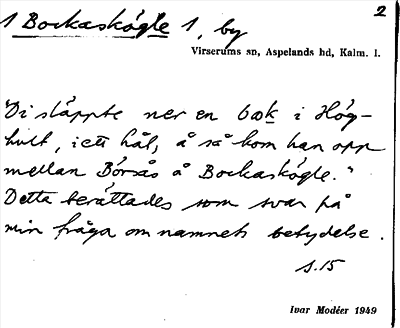 2
1 Bockaskógle 1, by
Virserums sn, Aspelands hd, Kalm. l.
"Di släppte ner en bok i Hög-
hult, i ett hål, å så kom han opp
mellan Bórsås å Bockaskógle."
Detta berättades som svar på
min fråga om namnets betydelse.
s. 15
Ivar Modéer 1949